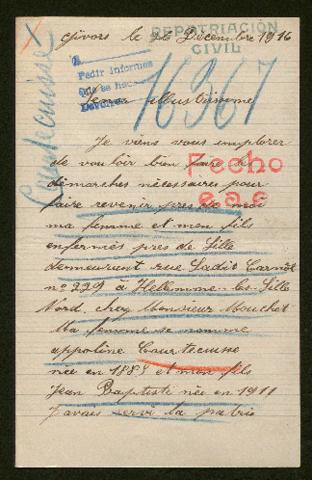 Givors le 26 Décembre 1916
REPATRIACIÓN
CIVIL
Pedir informes
que se haga
16367
Courtecuisse
Señor illustrissime
Je viens vous implorer
de vouloir bien faire des
démarches nécessaires pour
faire revenir près de moi
ma femme et mon fils
enfermés près de Lille
demeurant rue Sadit Carnot
no 229 à Hellemme-les-Lille
Nord, chez Monsieur Mouchet
Ma femme se nomme
appoline Courtecuisse
née en 1888 et mon fils
Jean Baptiste née en 1911
J'avais servi la patrie
Fecho
e.a.e